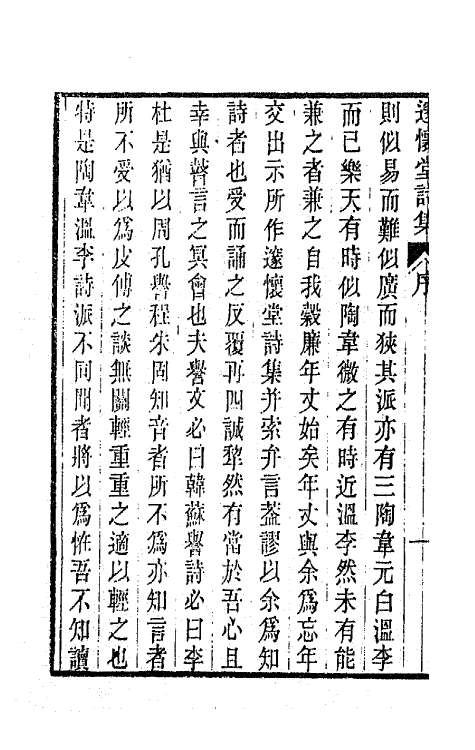 邃懷堂詩集 序 一
則似易而難似廣而狹其派亦有三陶韋元白溫李
而已樂天有時似陶韋微之有時近溫李然未有能
兼之者兼之自我穀廉年丈始矣年丈與余為忘年
交出示所作邃懷堂詩集并索弁言蓋謬以余為知
詩者也受而誦之反覆再四誠犂然有當於吾心且
幸與瞽言之冥會也夫譽文必曰韓蘇譽詩必曰李
杜是猶以周孔譽程朱固知音者所不為亦知言者
所不受以為皮傅之談無關輕重重之適以輕之也
特是陶韋溫李詩派不同閒者將以為恠吾不知讀